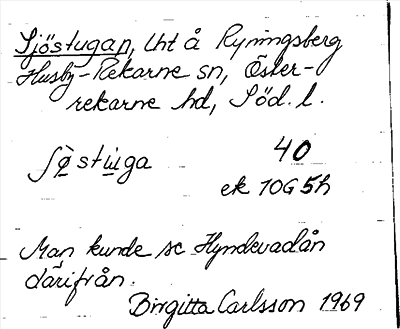 Sjöstugan, lht å Ryningsberg
Husby-Rekarne sn, Öster-
rekarne hd, Söd. l.
40
ek 10G5h
Man kunde se Hyndevadån
därifrån.
Birgitta Carlsson 1969